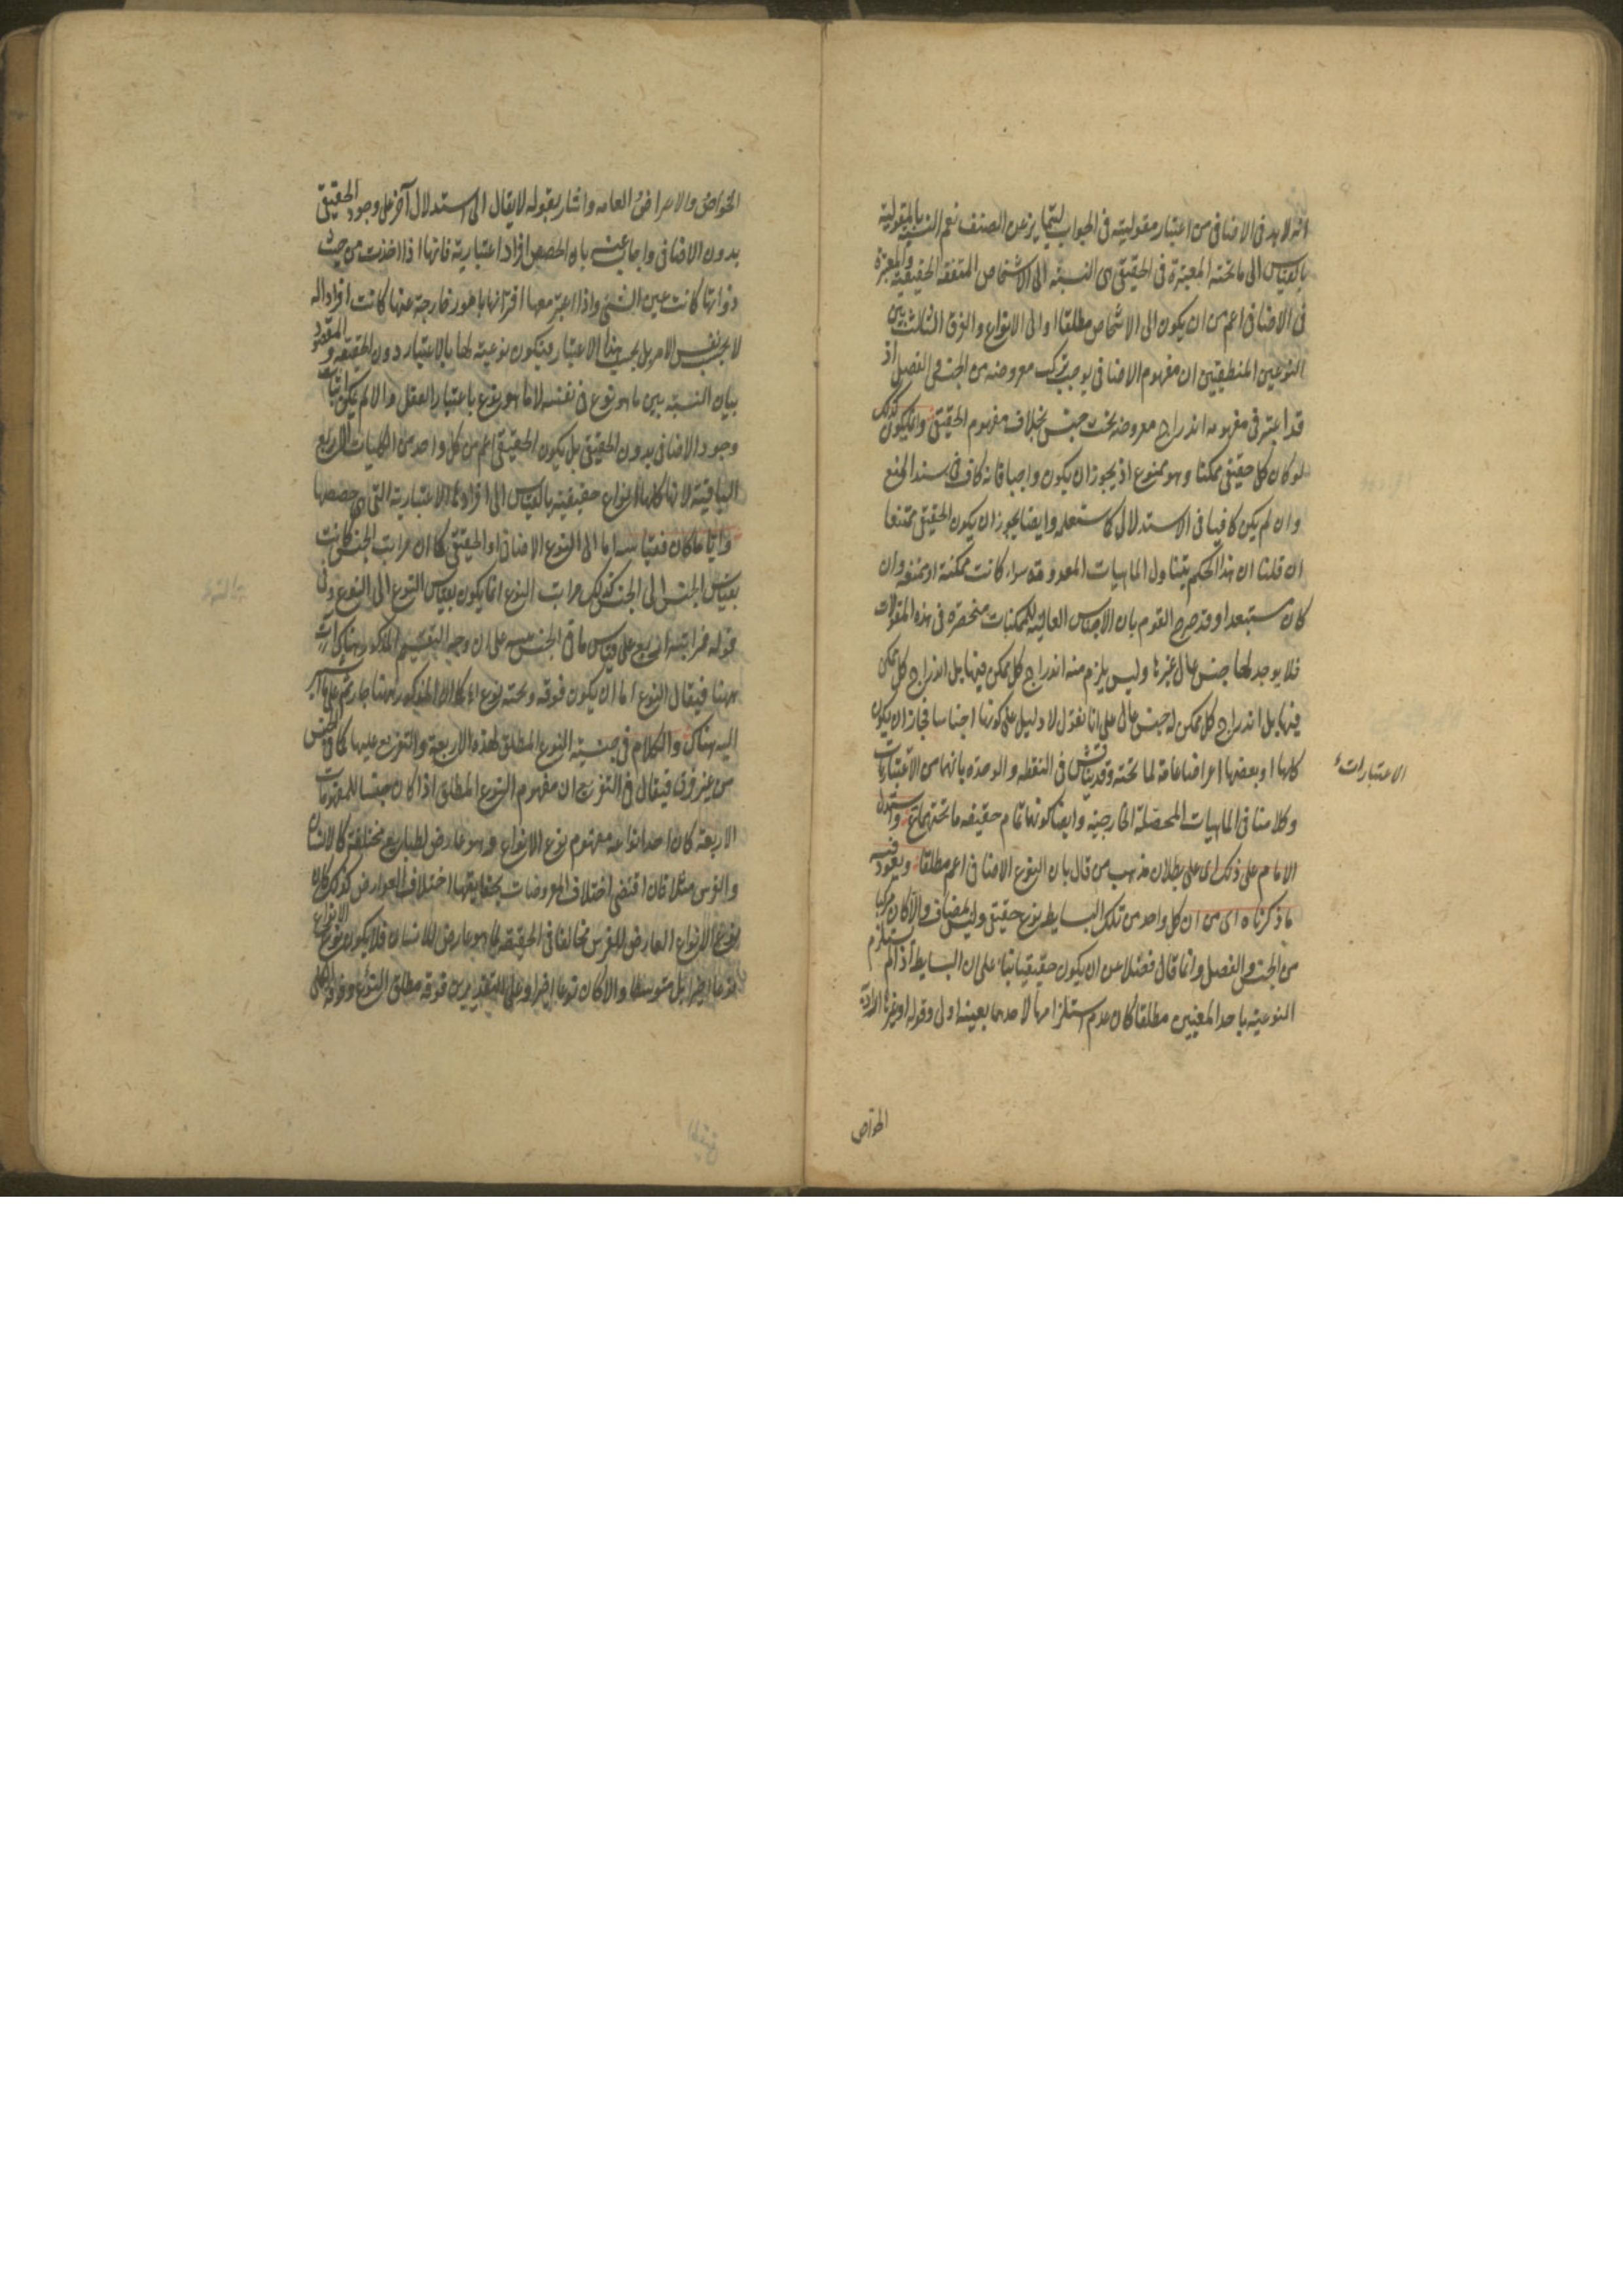 انه لا بد فى الاضافى من اعتبار مقوليته فى الجواب ليتمايز عن الصنف نعم النسبة بالمقولية
بالقياس الى ما تحته المعتبرة فى الحقيقى هى النسبة الى الاشخاص المتفقة الحقيقية والمعتبرة
فى الاضافى اعم من ان يكون الى الاشخاص مطلقا او الى الانواع والفرق الثالث بين
النوعين المنطقيين ان مفهوم الاضافى يوجب تركب معروضه من الجنس والفصل اذ
قد اعتبر فى مفهومه اندراج معروضه تحت جنس بخلاف مفهوم الحقيقى وانما يكون كذلك
لو كان كل حقيقى ممكنا وهو ممنوع اذ يجوز ان يكون واجبا فانه كاف فى سند المنع
وان لم يكن كافيا فى الاستدلال كاستعمله وايضا يجوز ان يكون الحقيقى ممتنعا
ان قلنا ان هذا الحكم يتناول الماهيات المعدومة سواء كانت ممكنة او ممتنعة وان
كان مستبعدا وقد صرح القوم بان الاجناس العالية للممكنات منحصرة فى هذه المقولات
فلا يوجد لها جنس عال غيرها وليس يلزم منه اندراج كل ممكن فيها بل اندراج كل ممكن
فيها بل اندراج كل ممكن له جنس عالى على انا نقول لا دليل على كونها اجناسا فجاز ان يكون
كلها او بعضها اعراضا عامة لما تحته وقد يناقش فى النقطة والوحدة بانهما من الاعتباريات
الاعتبارات
وكلامنا فى الماهيات المحصلة الخارجية وايضا كونهما تمام حقيقة ما تحتهما واستدل
الامام على ذلك اى على بطلان مذهب من قال بان النوع الاضافى اعم مطلقا ويعود فيه
ما ذكرناه اى من ان كل واحد من تلك البسايط نوع حقيقى وليس بمضاف والا كان مركبا
من الجنس والفصل وانما قال فضلا عن ان يكون حقيقيا بناء على ان البسايط اذا لم يستلزم
النوعية باحد المعنيين مطلقا كان عدم استلزامها لاحدهما بعينه اولى وقوله او غيرها اراد به
الخواص
الخواص والاعراض العامة واشار بقوله لا يقال الى استدلال آخر على وجود الحقيقى
بدون الاضافى واجاب عنه بان الحصص افراد اعتبارية فانها اذا اخذت من حيث
ذواتها كانت عين الشئ واذا اعتبر معها اقترانها بامور خارجة عنها كانت افرادا له
لا بحسب نفس الامر بل بحسب هذا الاعتبار فيكون نوعيته لها بالاعتبار دون الحقيقة والمقصود
بيان النسبة بين ما هو نوع فى نفسه لا ما هو نوع باعتبار العقل والا لم يكن اثبات
وجود الاضافى بدون الحقيقى بل يكون الحقيقى اعم من كل واحد من الكليات الاربع
الباقية لانها كلها انواع حقيقية بالقياس الى افرادها الاعتبارية التى هى حصصها
وايا ما كان فقياسه اما الى النوع الاضافى او الحقيقى كما ان مراتب الجنس كانت
بقياس الجنس الى الجنس كذلك مراتب النوع انما يكون بقياس النوع الى النوع وفى
قوله فمراتبه اربع على قياس ما فى الجنس على ان وجه التقسيم المذكور هناك آت
ههنا فيقال النوع اما ان يكون فوقه وتحته نوع
اليه هناك والكلام فى جنسية النوع المطلق لهذه الاربعة والتفريع عليها كما فى الجنس
من غير فرق فيقال فى التفريع ان مفهوم النوع المطلق اذا كان جنسا للمفهومات
الاربعة كان احد انواعه مفهوم نوع الانواع وهو عارض لطبايع مختلفة كالانسان
والفرس مثلا فان اقتضى اختلاف المعروضات بحقايقها اختلاف العوارض كذلك كان
نوع الانواع العارض للفرس مخالفا فى الحقيقة لما هو عارض للانسان فلا يكون نوع الانواع
نوعا اخيرا بل متوسطا والا كان نوعا اخيرا وعلى التقديرين فوقه مطلق النوع وفوقه الكلى